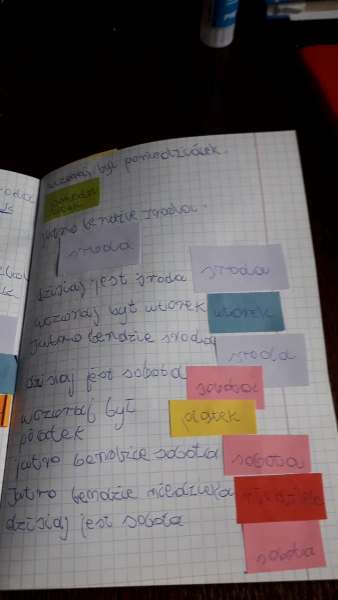 wczoraj był poniedziałek.
jutro bendzie środa.
środa
dzisiaj jest środa środa
wczoraj był wtorek wtorek
Jutro bendzie środa
środa
dzisiaj jest sobota sobota
wczoraj był piątek
piątek
jutro bendzie sobota sobota
Jutro bendzie niedziela niedziela
dzisiaj jest sobota
sobota